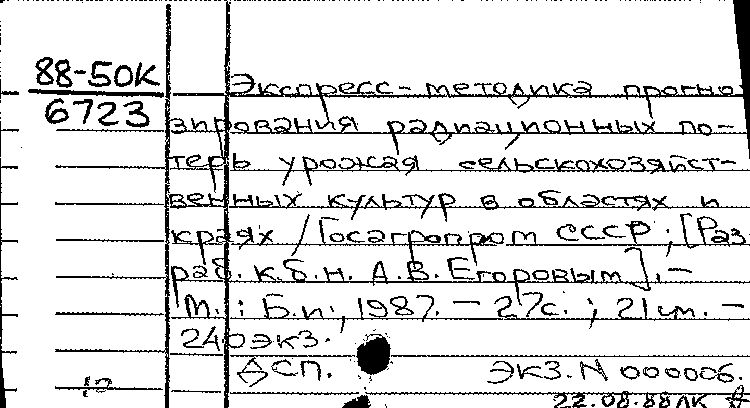 88-50К
6723
Экспресс-методика прогно
зирования радиационных по-
терь урожая сельскохозяйст-
венных культур в областях и
краях / Госагропром СССР; [Раз
раб. к.б.н. А.В. Егоровым]. -
М.: Б.и., 1987. - 27с.; 21 см. -
240экз.
ДСП. Экз. N 000006.
22.08.88ЛК